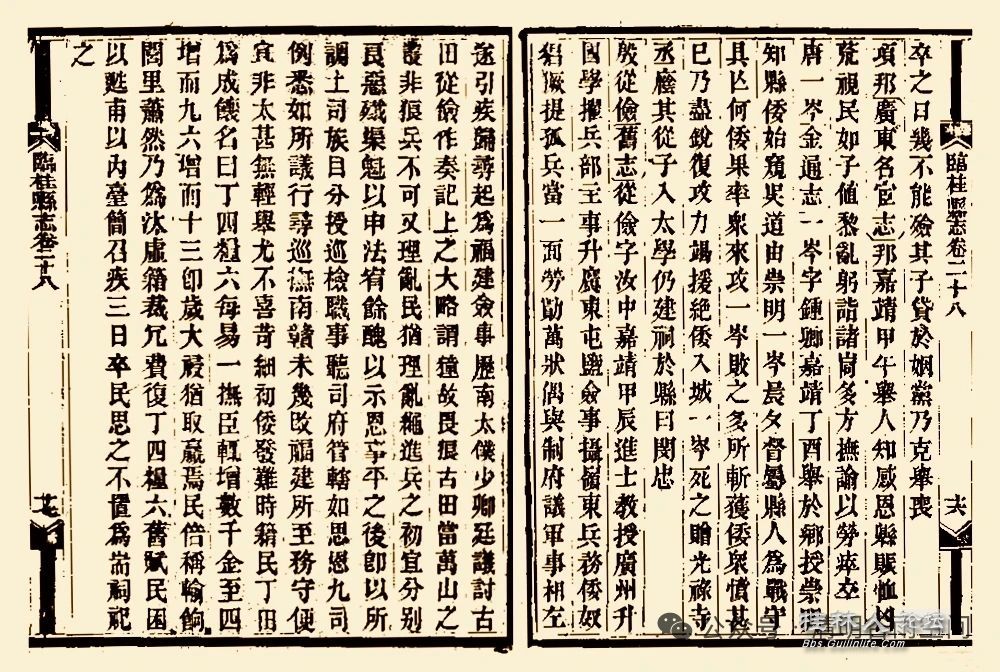 卒之日幾不能殮其子貸於姻黨乃克舉喪
項邦廣東名宦志邦嘉靖甲午舉人知感恩縣賑恤凶
荒視民如子值黎亂躬詣諸峒多方撫諭以勞瘁卒
唐一岑金通志一岑字鍾卿嘉靖丁酉舉於鄉授崇明
知縣倭始窺吳道由崇明一岑晨夕督屬縣人為戰守
具亾何倭果率衆來攻一岑敗之多所斬獲倭衆憤甚
巳乃盡銳復攻力竭援絕倭入城一岑死之贈光祿寺
丞廕其從子入太學仍建祠於縣曰閔忠
殷從儉舊志從儉字汝中嘉靖甲辰進士教授廣州升
國學擢兵部主事升廣東屯鹽僉事攝嶺東兵務倭奴
猖獗提孤兵當一面勞勩萬狀偶與制府議軍事相左
臨桂縣志卷二十八
遂引疾歸尋起為福建僉事歷南太僕少卿廷議討古
田從儉作奏記上之大略謂獞故畏狼古田當萬山之
叢非狼兵不可又理亂民猶理亂繩進兵之初宜分別
良惡殲渠魁以申法宥餘醜以示恩事平之後卽以所
調土司族目分授巡檢職事聽司府管轄如思恩九司
例悉如所議行尋巡撫南贛未幾改福建所至務守便
宜非太甚無輕舉尤不喜苛細初倭發難時籍民丁田
為成餉名曰丁四糧六每易一撫臣輒增數千金至四
增而九六增而十三卽歲大祲猶取贏焉民倍稱輸餉
閭里蕭然乃為汰虛籍裁冗費復丁四糧六舊賦民困
以甦甫以內臺簡召疾三日卒民思之不置為耑祠祀
之
臨桂縣志卷二十八
桂林人论坛
Bbs.Guilinlife.Com